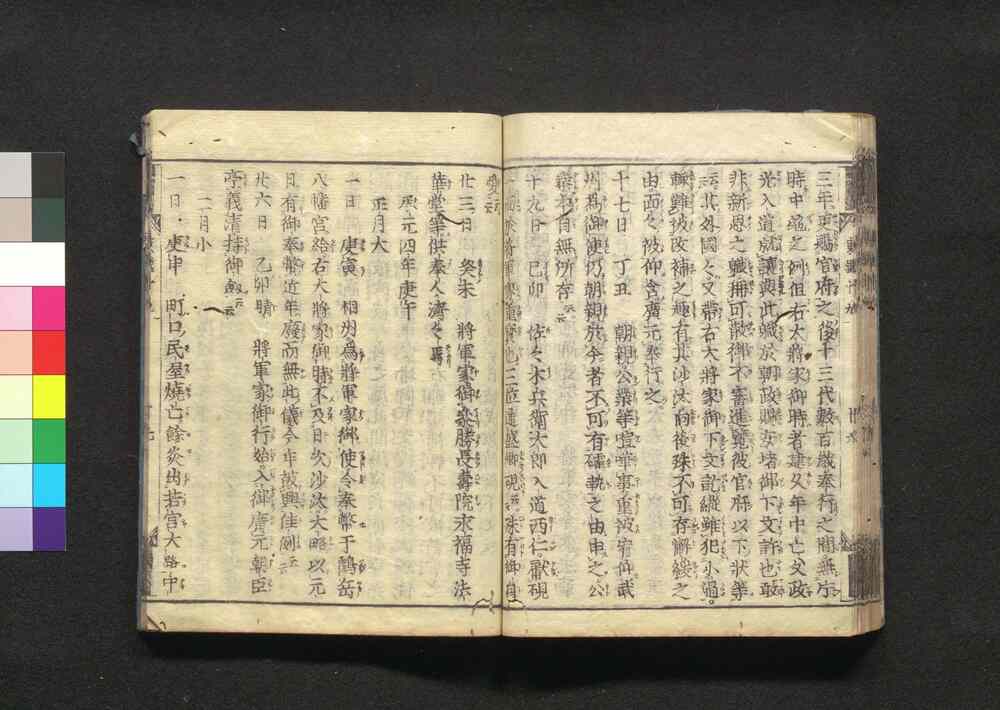 三年更賜官府之後十三代數百歲奉行之間無片
時中絶之例但右大將家御時者建久年中亡父政
光入道就讓與此職於朝政賜安堵御下文許也敢
非新恩之職稱可散御不審進覽彼官府以下狀等
云此外國々又帶右大將家御下文訖縱雖犯小過
輙難被改補之趣有其沙汰向後殊不可存懈緩之
由面々被仰含廣元奉行之
十七日 丁丑 朝親公業等喧嘩事重被宥仰武
州爲御使仍朝親於今者不可有確執之由申之公
業本自無所存云云
十九日 己卯 佐々木兵衛太郎入道西仁獻硯
愛云云
廿三日 癸未 將軍家御參勝長壽院永福寺法
華堂等供奉人濟々焉
承元四年庚午
正月大
一日 庚寅 相州爲將軍家御使令奉幣于鶴岳
八幡宮給右大將家御時不及日次沙汰大略以元
日有御奉幣近年廢而無此儀今年被興佳例云云
廿六日 乙卯晴 將軍家御行始入御廣元朝臣
亭義清持御劔云云
二月小
一日 庚申 町口民屋燒亡餘炎出若宮大路中